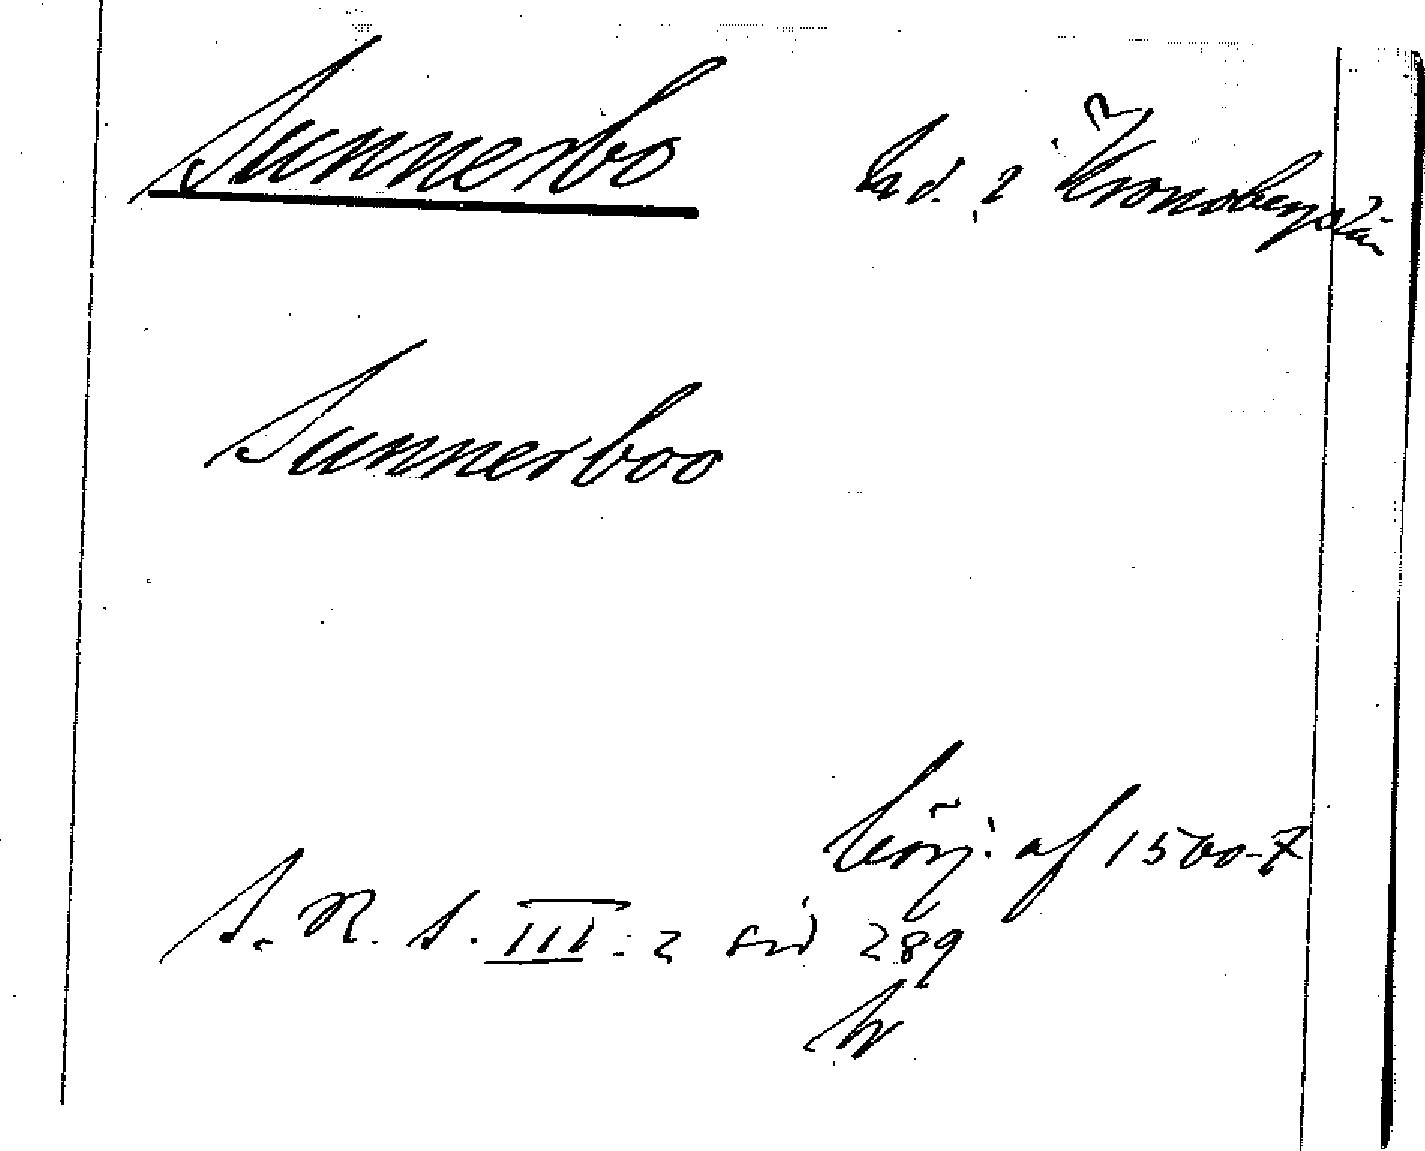 Sunnerbo hd. i Kronobergs län
Sunnerboo
börj. af 1500-t
S. R. S. III. 2 sid 289